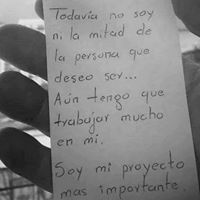 Todavía no soy
ni la mitad de
la persona que
deseo ser...
Aún tengo que
trabajar mucho
en mí.
Soy mi proyecto
mas importante.